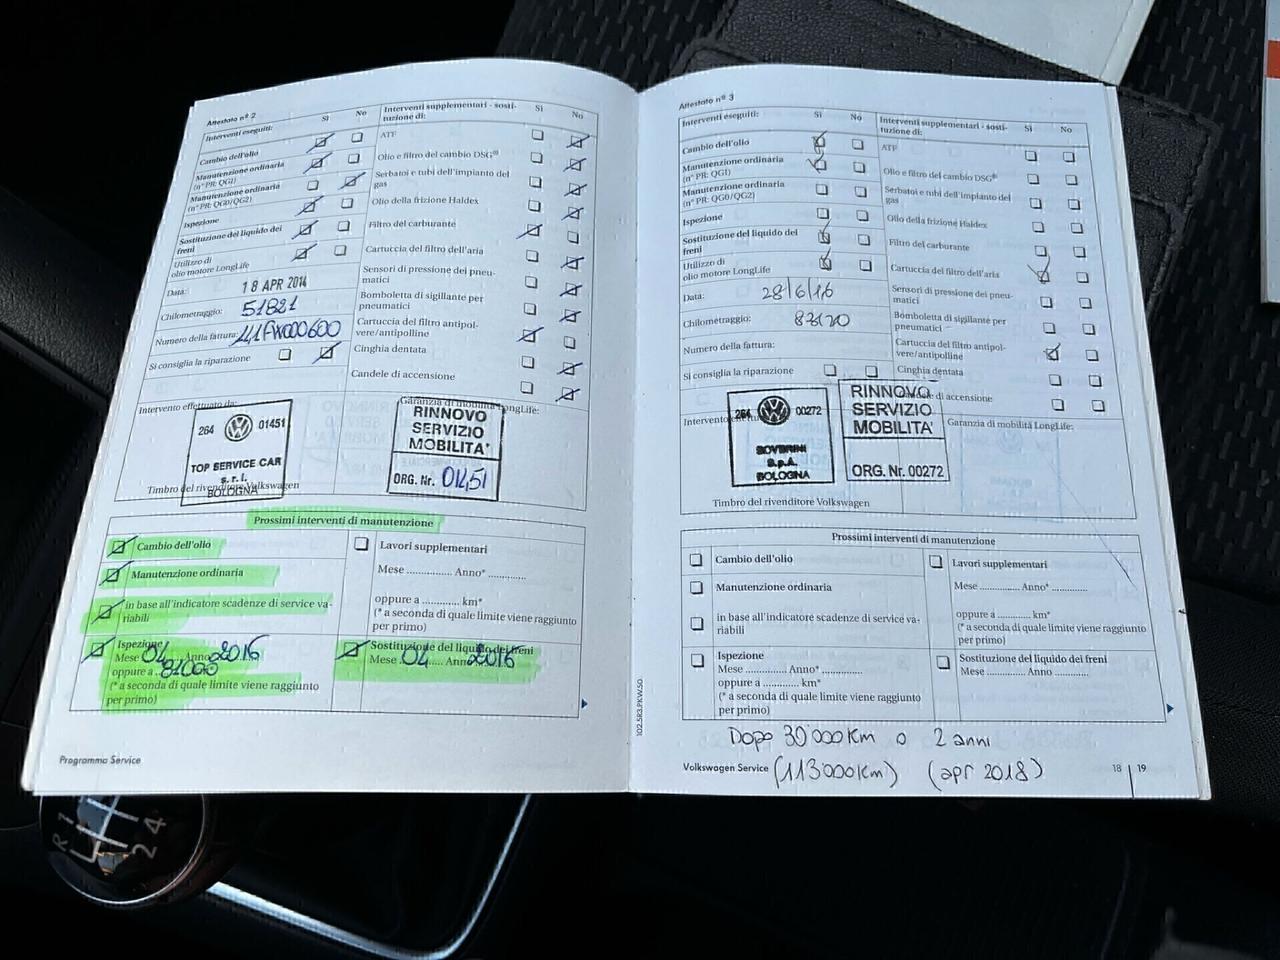 Attestato nº 2
Interventi eseguiti:
Sì
No
Cambio dell'olio
Manutenzione ordinaria
(nº PR: QG1)
Manutenzione ordinaria
(nº PR: QG0/QG2)
Ispezione
Sostituzione del liquido dei
freni
Utilizzo di
olio motore LongLife
Data:
18 APR 2014
Chilometraggio:
51821
Numero della fattura:
Si consiglia la riparazione
Interventi supplementari - sosti-
tuzione di:
Sì
No
ATF
Olio e filtro del cambio DSG®
Serbatoi e tubi dell'impianto del
gas
Olio della frizione Haldex
Filtro del carburante
Cartuccia del filtro dell'aria
Sensori di pressione dei pneu-
matici
Bomboletta di sigillante per
pneumatici
Cartuccia del filtro antipol-
vere/antipolline
Cinghia dentata
Candele di accensione
Intervento effettuato da:
264
01451
TOP SERVICE CAR
s.r.l.
BOLOGNA
Timbro del rivenditore Volkswagen
Garanzia di mobilità LongLife:
RINNOVO
SERVIZIO
MOBILITA'
ORG. Nr. 01451
Prossimi interventi di manutenzione
Cambio dell'olio
Manutenzione ordinaria
in base all'indicatore scadenze di service va-
riabili
Ispezione
Mese 04 Anno 2016
oppure a 81000
(* a seconda di quale limite viene raggiunto
per primo)
Lavori supplementari
Mese ............... Anno* .............
oppure a ............ km*
(* a seconda di quale limite viene raggiunto
per primo)
Sostituzione del liquido dei freni
Mese 04 Anno 2016
Programma Service
102.5R3.PKW.50
Attestato nº 3
Interventi eseguiti:
Sì
No
Cambio dell'olio
Manutenzione ordinaria
(nº PR: QG1)
Manutenzione ordinaria
(nº PR: QG0/QG2)
Ispezione
Sostituzione del liquido dei
freni
Utilizzo di
olio motore LongLife
Data:
28/6/16
Chilometraggio:
Numero della fattura:
Si consiglia la riparazione
Interventi supplementari - sosti-
tuzione di:
Sì
No
ATF
Olio e filtro del cambio DSG®
Serbatoi e tubi dell'impianto del
gas
Olio della frizione Haldex
Filtro del carburante
Cartuccia del filtro dell'aria
Sensori di pressione dei pneu-
matici
Bomboletta di sigillante per
pneumatici
Cartuccia del filtro antipol-
vere/antipolline
Cinghia dentata
Candele di accensione
264
00272
S.p.A.
BOLOGNA
Timbro del rivenditore Volkswagen
RINNOVO
SERVIZIO
MOBILITA'
ORG. Nr. 00272
Garanzia di mobilità LongLife:
Prossimi interventi di manutenzione
Cambio dell'olio
Manutenzione ordinaria
in base all'indicatore scadenze di service va-
riabili
Ispezione
Mese ............... Anno* .............
oppure a ............ km*
(* a seconda di quale limite viene raggiunto
per primo)
Lavori supplementari
Mese ............... Anno* .............
oppure a ............ km*
(* a seconda di quale limite viene raggiunto
per primo)
Sostituzione del liquido dei freni
Mese ............... Anno .............
Dopo 30'000 km o 2 anni
(113'000 km) (apr 2018)
Volkswagen Service
18 | 19
R 1
2 4